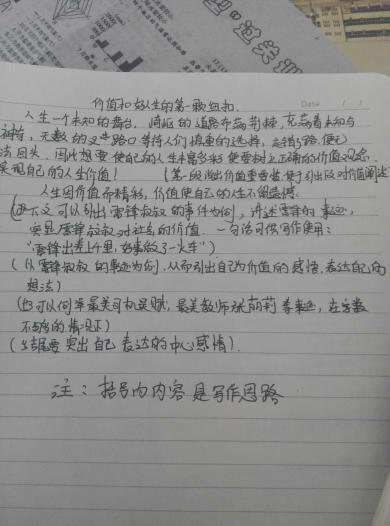 型"过关训
价值扣好人生的第一颗纽扣.
Date / /
人生一个未知的舞台, 崎岖的道路布满荆棘, 充满着未知与
神奇, 无数的叉路口等待人们慎重的选择, 走错了路, 便无
法回头. 因此想要使自己的人生丰富多彩 便要树立正确的价值观念.
实现自己的人生价值! (第一段指出价值重要性, 便于引出下文对价值阐述)
人生因价值而精彩, 价值使自己的人生不留遗憾.
(下文可以引出雷锋叔叔的事件为例, 讲述雷锋的事迹,
突显雷锋叔叔对社会的价值. 一句话可供写作使用:
"雷锋出差七千里, 好事做了一火车")
(以雷锋叔叔的事迹为例, 从而引出自己对价值的感悟, 表达自己的
想法)
(也可以例举最美司机吴斌, 最美教师张丽莉等事迹, 在字数
不够的情况下)
(结尾要突出自己表达的中心感情).
注: 括号内内容是写作思路